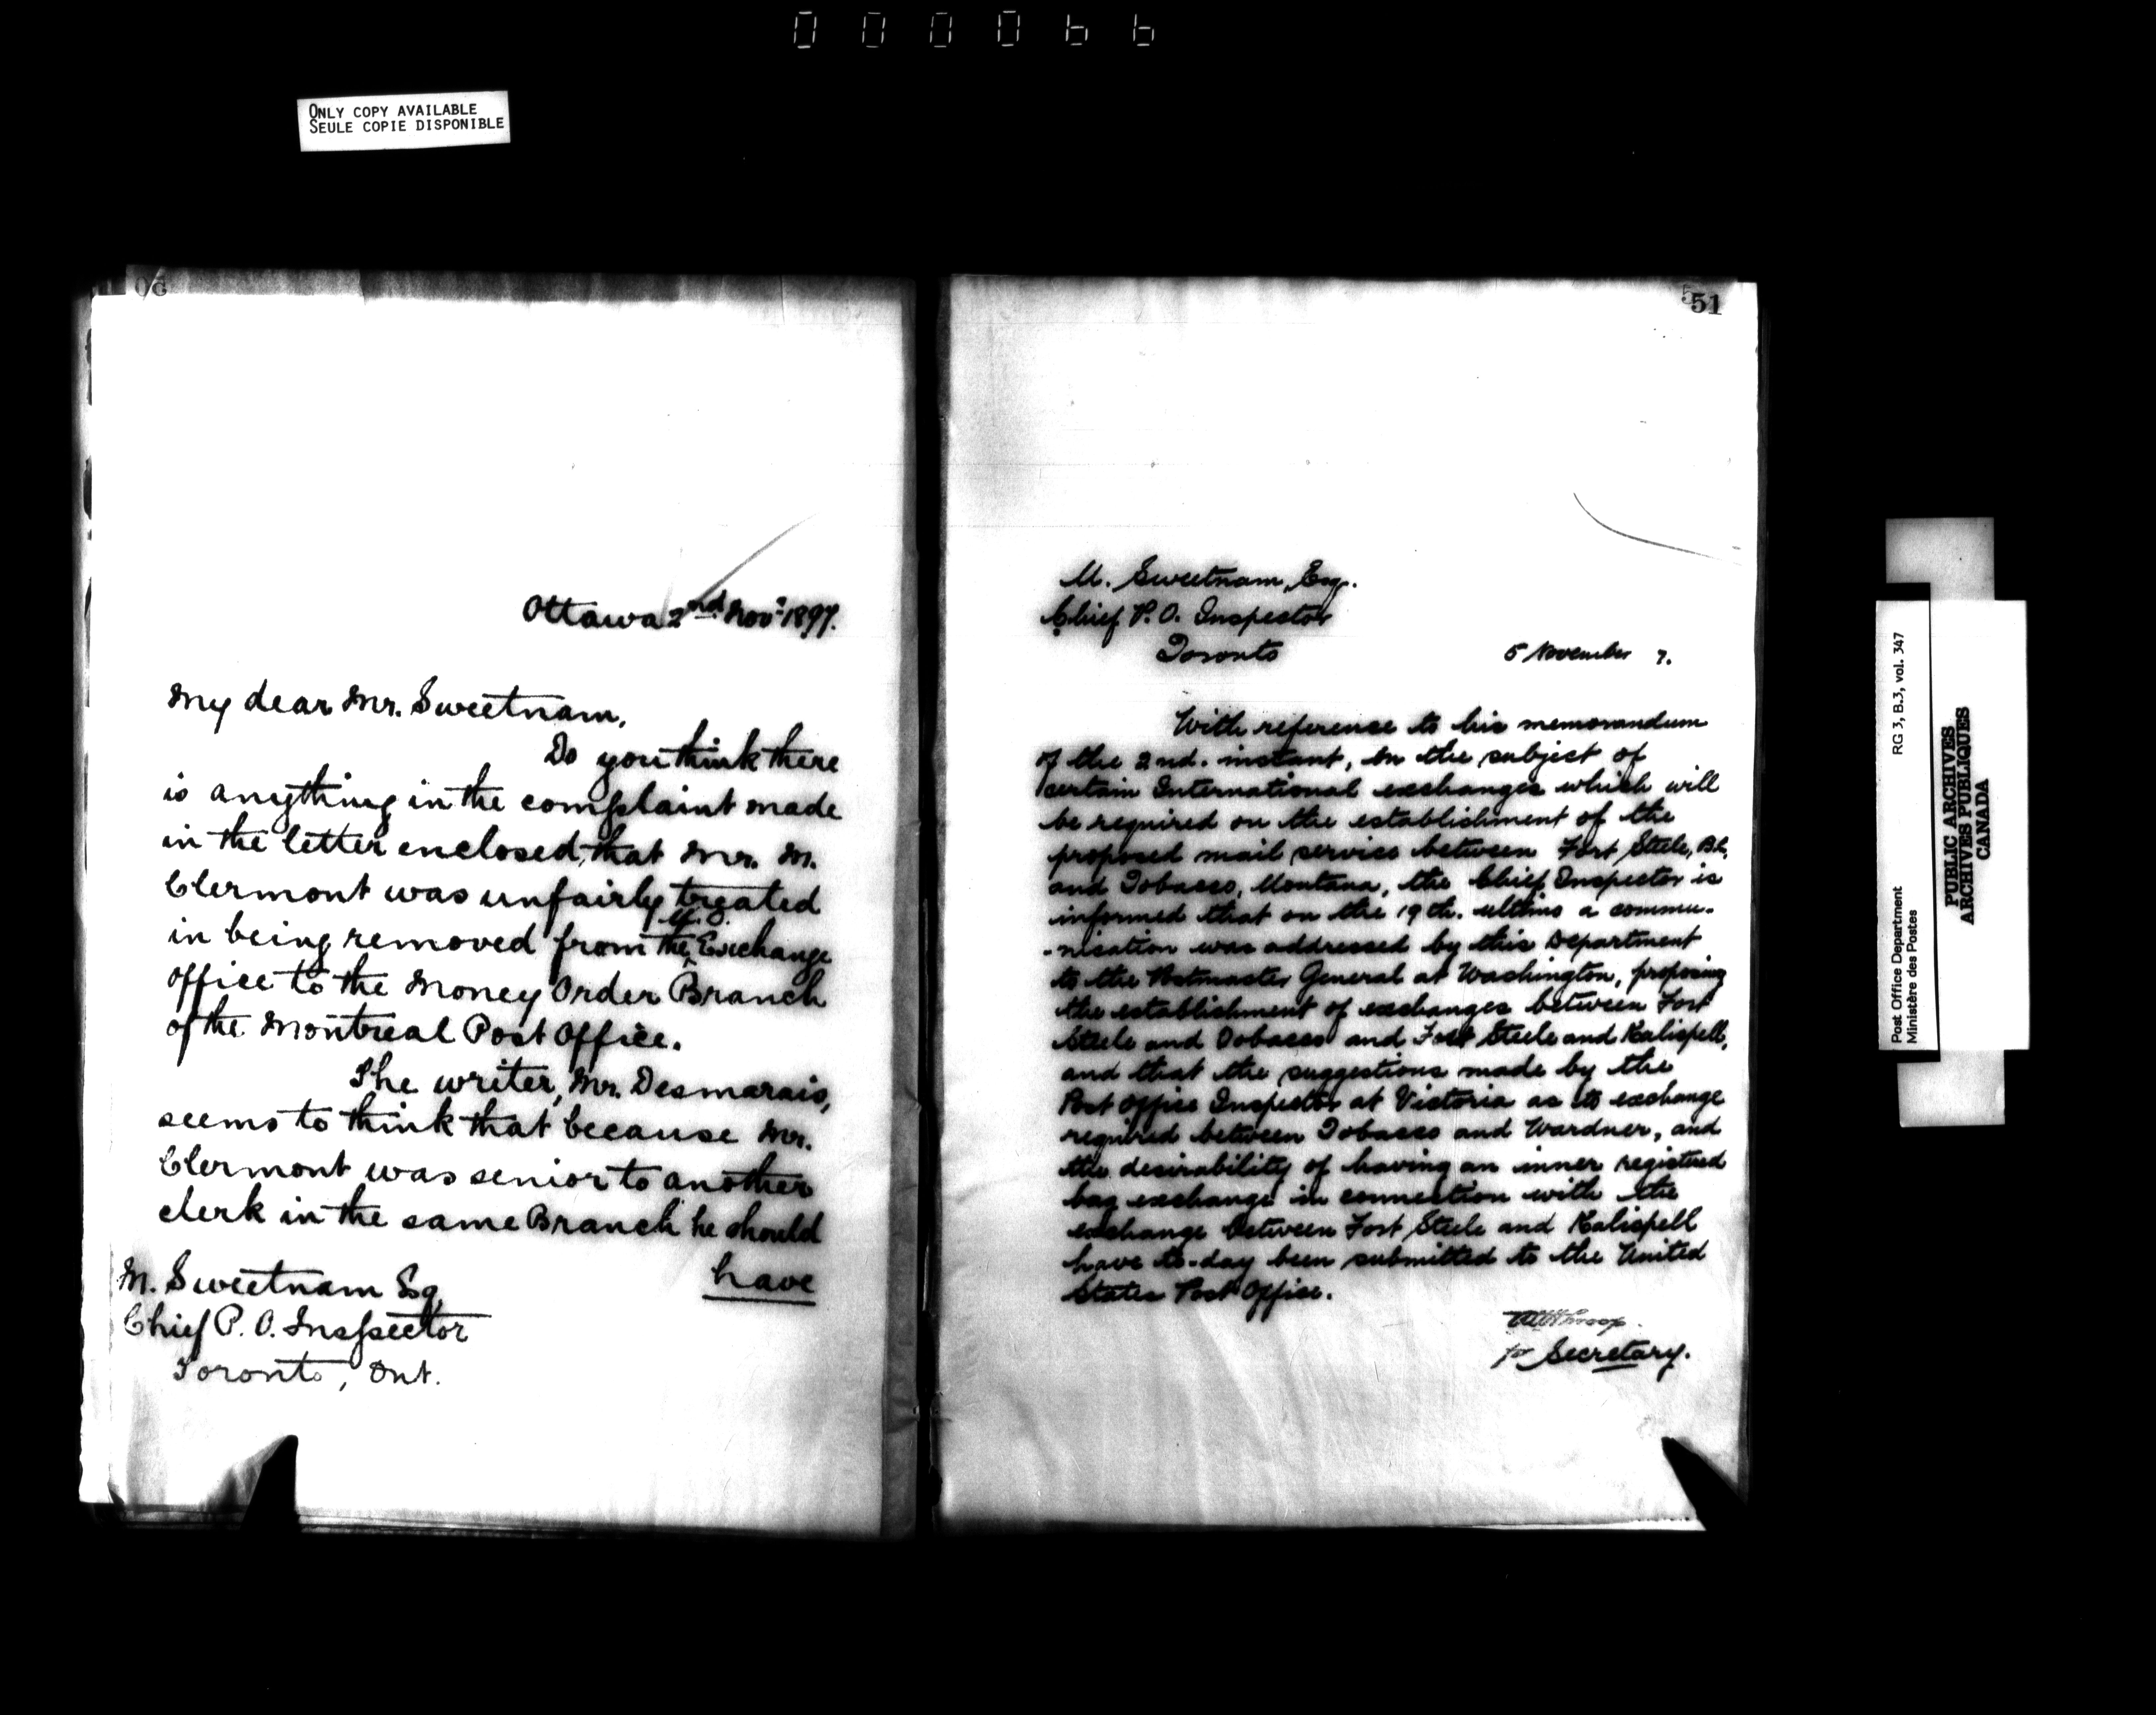 000066
ONLY COPY AVAILABLE
SEULE COPIE DISPONIBLE
Ottawa 2nd Novr. 1897.
My dear Mr. Sweetnam,
Do you think there
is anything in the complaint made
in the letter enclosed, that Mr. M.
Clermont was unfairly treated
in being removed from the Exchange
office to the Money Order Branch
of the Montreal Post Office.
The writer, Mr. Desmarais,
seems to think that because Mr.
Clermont was senior to another
clerk in the same Branch he should
have
M. Sweetnam Esq
Chief P. O. Inspector
Toronto, Ont.
51
M. Sweetnam, Esq.
Chief P. O. Inspector
Toronto
5 November 7.
With reference to his memorandum
of the 2nd. instant, on the subject of
certain International exchanges which will
be required on the establishment of the
proposed mail service between Fort Steele, B.C.
and Tobacco, Montana, the Chief Inspector is
informed that on the 19th. ultimo a commu-
-nication was addressed by this Department
to the Postmaster General at Washington, proposing
the establishment of exchanges between Fort
Steele and Tobacco and Fort Steele and Kalispell,
and that the suggestions made by the
Post Office Inspector at Victoria as to exchange
required between Tobacco and Wardner, and
the desirability of having an inner registered
bag exchange in connection with the
exchange between Fort Steele and Kalispell
have to-day been submitted to the United
States Post Office.
for Secretary.
Post Office Department RG 3, B.3, vol. 347
Ministère des Postes
PUBLIC ARCHIVES
ARCHIVES PUBLIQUES
CANADA